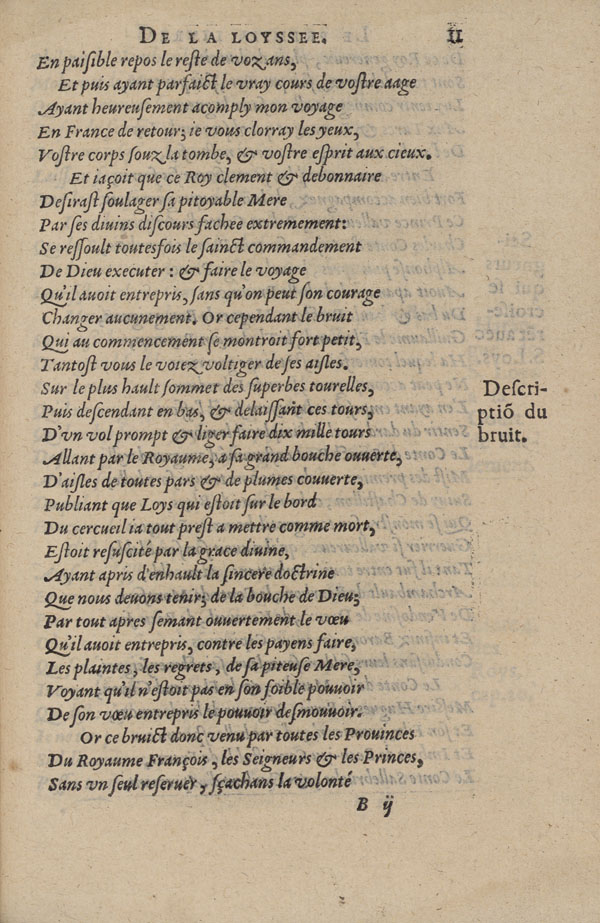 DE LA LOYSSEE. 11
En paisible repos le reste de voz ans,
Et puis ayant parfaict le vray cours de vostre aage
Ayant heureusement acomply mon voyage
En France de retour; ie vous clorray les yeux,
Vostre corps souz la tombe, & vostre esprit aux cieux.
Et iaçoit que ce Roy clement & debonnaire
Desirast soulager sa pitoyable Mere
Par ses diuins discours fachee extremement:
Se ressoult toutesfois le sainct commandement
De Dieu executer : & faire le voyage
Qu'il auoit entrepris, sans qu'on peut son courage
Changer aucunement. Or cependant le bruit
Qui au commencement se montroit fort petit,
Tantost vous le voiez voltiger de ses aisles.
Sur le plus hault sommet des superbes tourelles,
Puis descendant en bas, & delaissant ces tours,
D'vn vol prompt & liger faire dix mille tours
Allant par le Royaume, a sa grand bouche ouuerte,
D'aisles de toutes pars & de plumes couuerte,
Publiant que Loys qui estoit sur le bord
Du cercueil ia tout prest a mettre comme mort,
Estoit resuscité par la grace diuine,
Ayant apris d'enhault la sincere doctrine
Que nous deuons tenir; de la bouche de Dieu;
Par tout apres semant ouuertement le vœu
Qu'il auoit entrepris, contre les payens faire,
Les plaintes, les regrets, de sa piteuse Mere,
Voyant qu'il n'estoit pas en son foible pouuoir
De son vœu entrepris le pouuoir desmouuoir.
Or ce bruict donc venu par toutes les Prouinces
Du Royaume François, les Seigneurs & les Princes,
Sans vn seul reseruer, sçachans la volonté
B ij
Descri-
ptiō du
bruit.